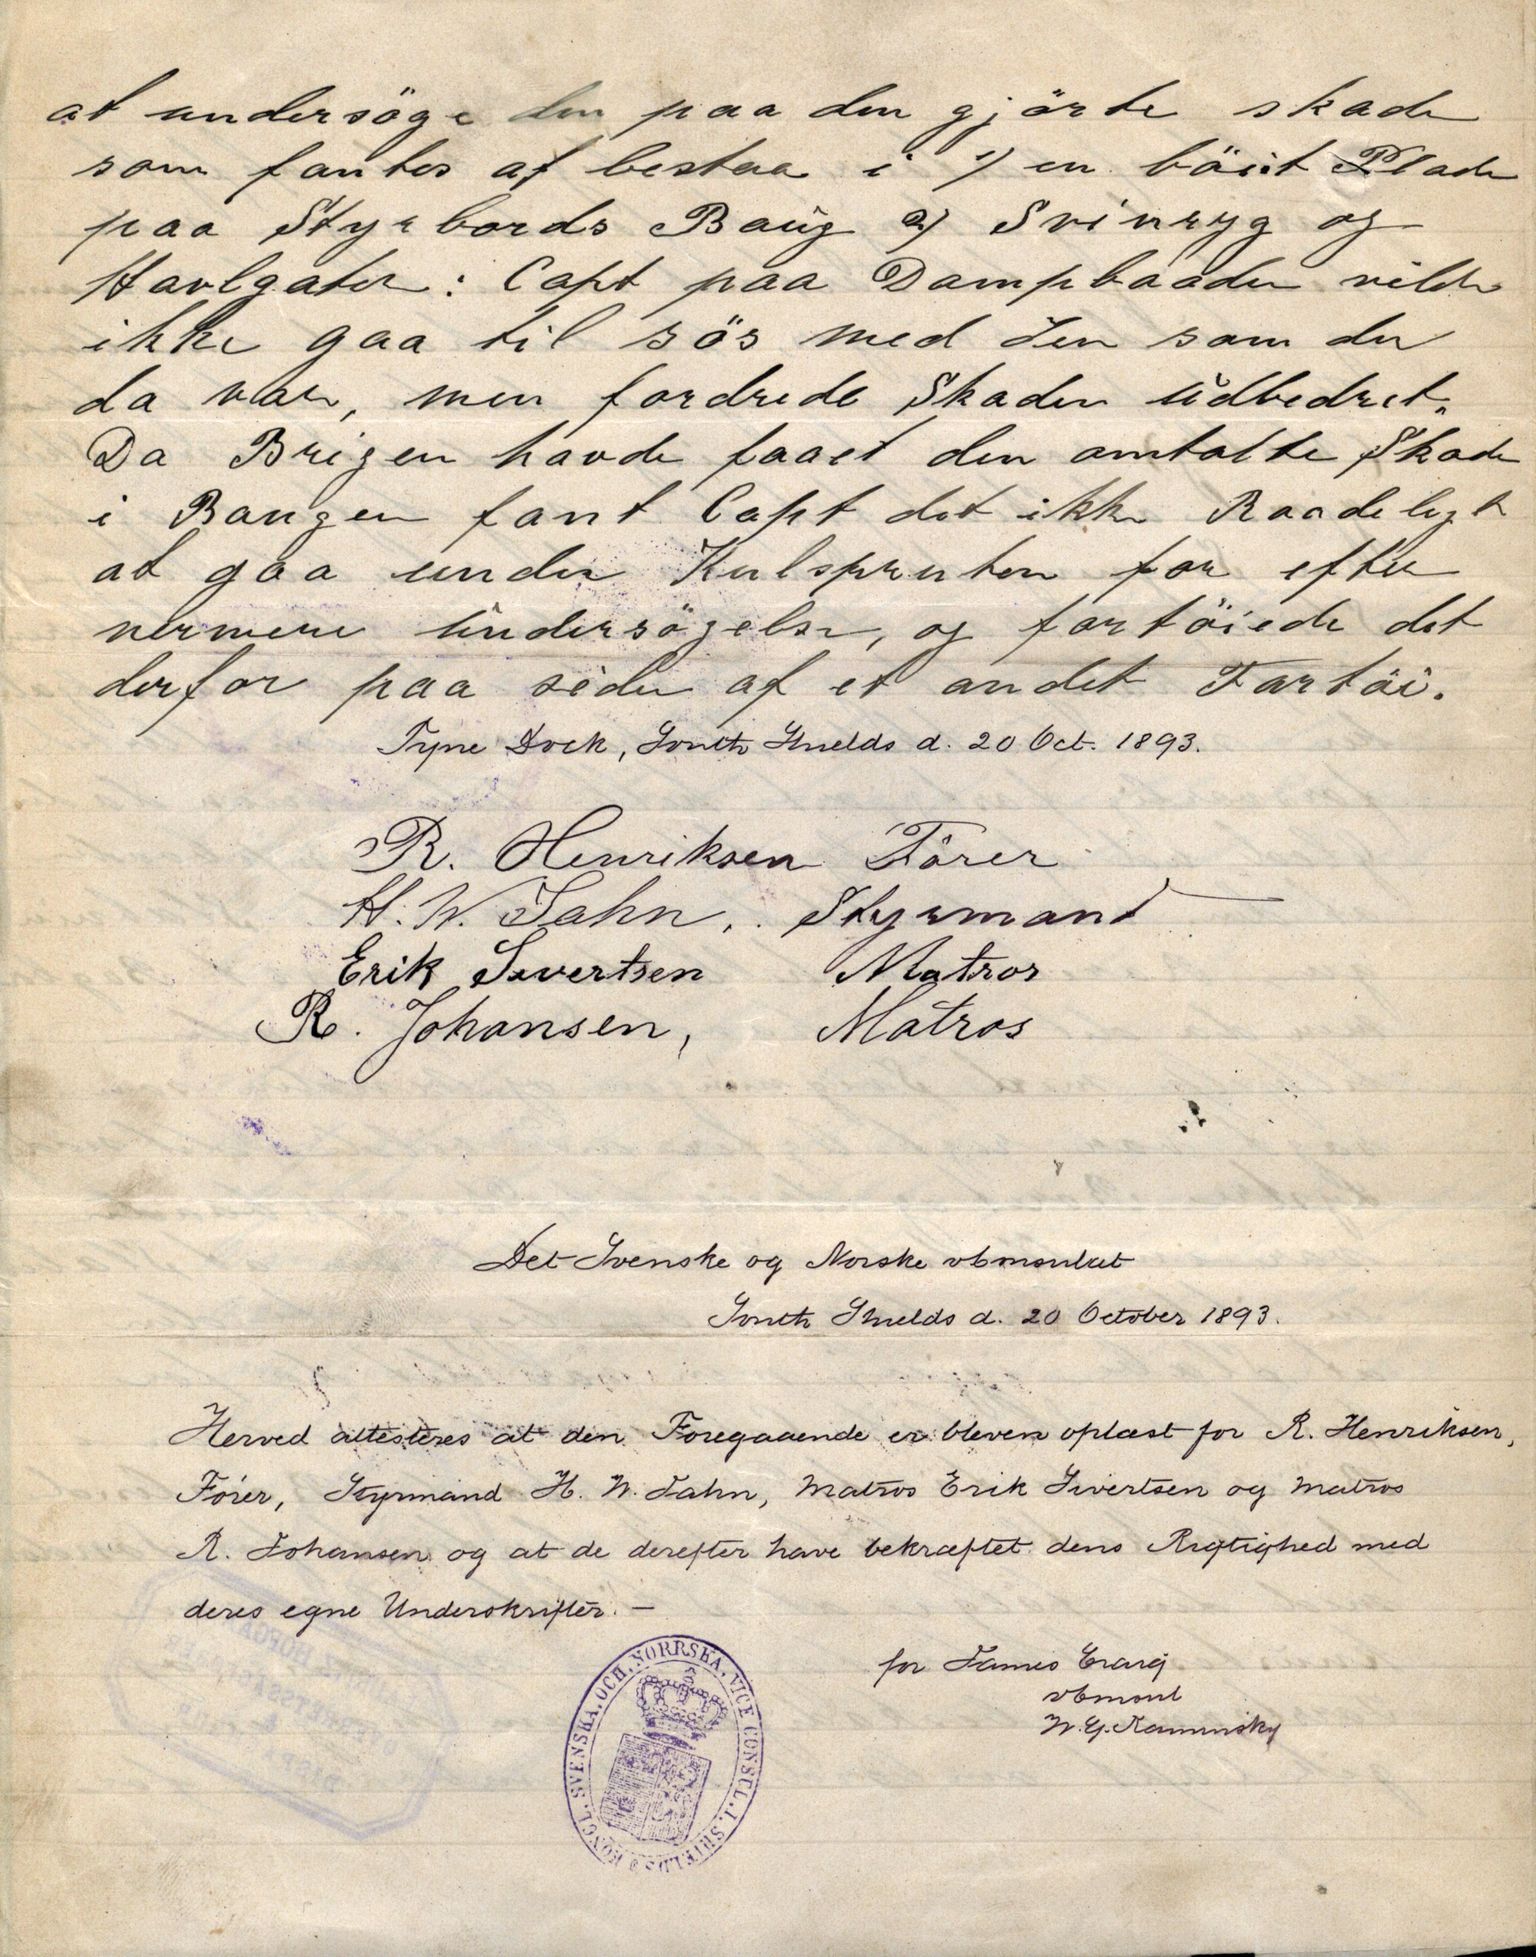 at undersöge den paa den gjörte skade
som fantes at bestaa i 1) en böiet Plade
paa Styrbords Baug 2) Svinryg og
Havlgater: Capt paa Dampbaaden vilde
ikke gaa til sös med den som den
da var, men fordrede Skaden üdbedret.
Da Brigen havde faaet den omtalte Skade
i Bangen fant Capt det ikke Raadeligt
at gaa under Kulspruten for efter
nermere ündersögelse, og fortöiede det
derfor paa siden af et andet Fartöi.
Tyne Dock, South Shields d. 20 Oct. 1893.
R. Henriksen Förer
H. W. Jahn, Styrmand
Erik Sivertsen Matros
R. Johansen, Matros
Det Svenske og Norske vConsulat
South Shields d. 20 October 1893.
Herved attesteres at den Foregaaende er bleven oplæst for R. Henriksen,
Fører, Styrmand H. W. Jahn, Matros Erik Sivertsen og Matros
R. Johansen og at de derefter have bekræftet dens Rigtighed med
deres egne Underskrifter. —
for James Craig
vConsul
W. G. Kaminsky
KONGL. SVENSKA. OCH. NORRSKA. VICE CONSUL. I. SHIELDS